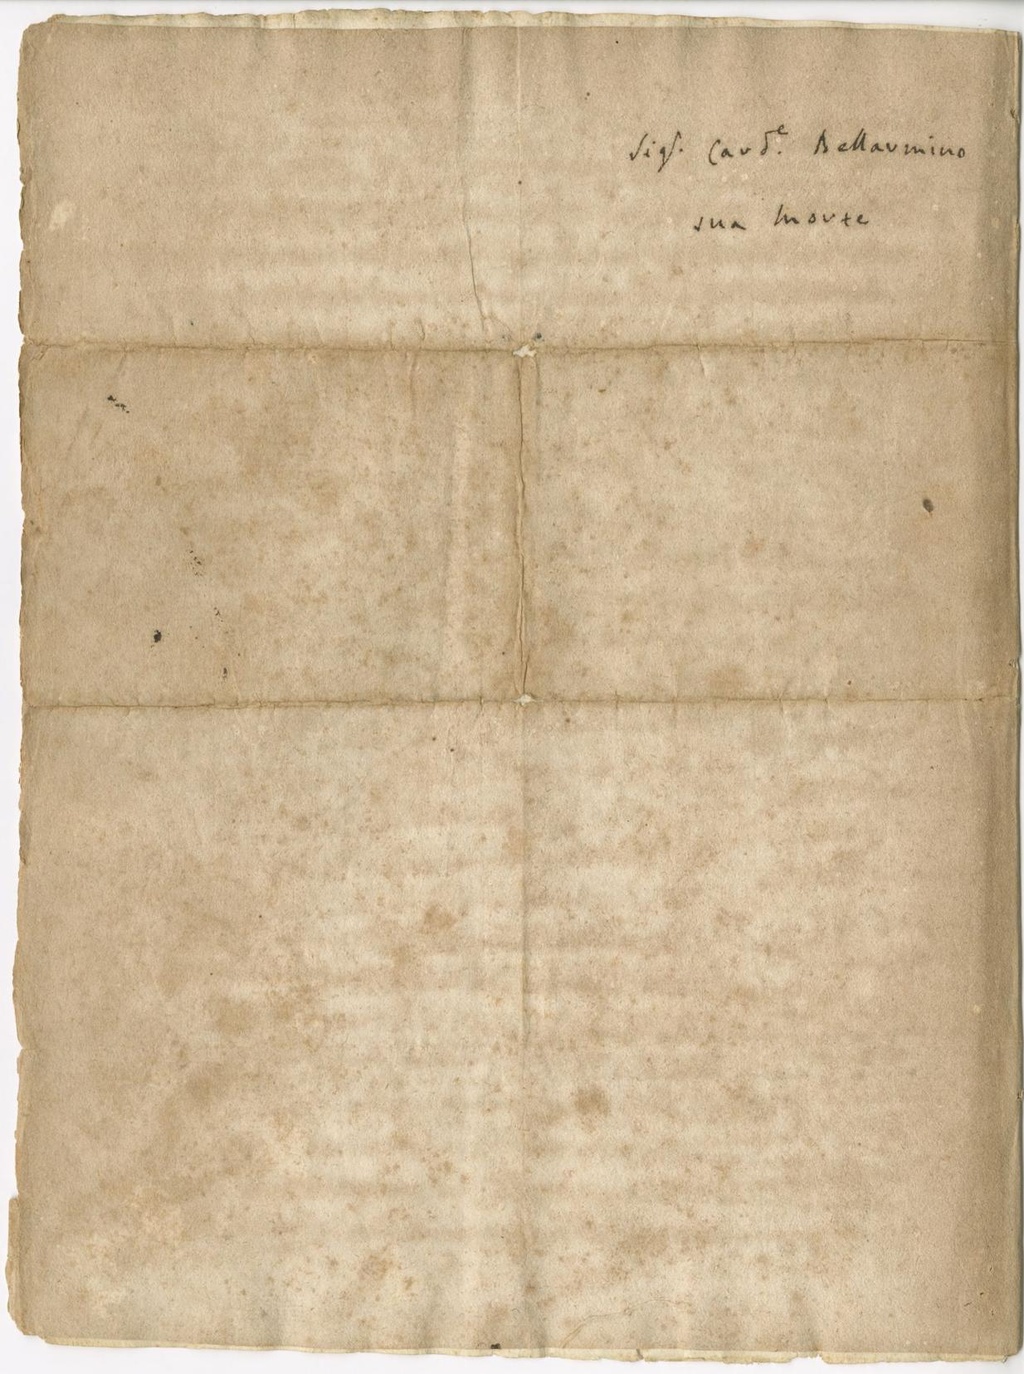 Sigr. Card.e Bellarmino
sua morte